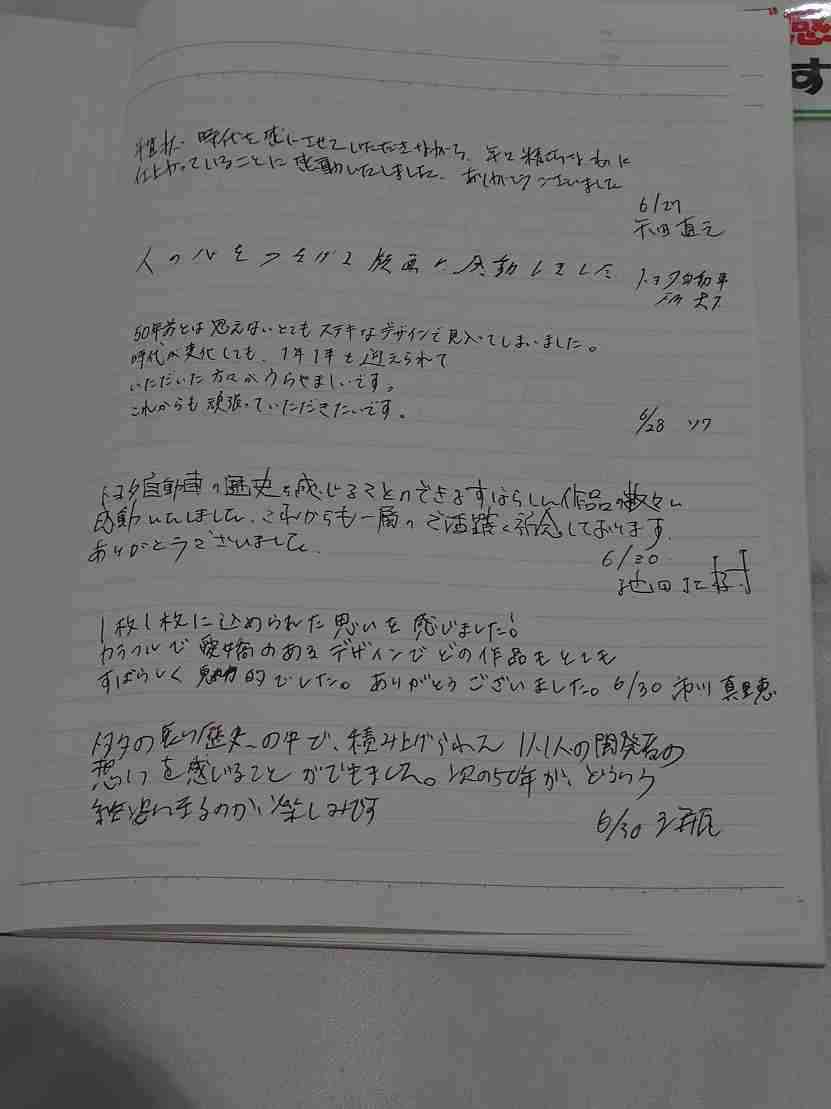 時代を感じさせていただきながら、
仕上がっていることに感動いたしました。ありがとうございました
6/27
人の心をつなげる版画に感動しました
トヨタ自動車
50年前とは思えないとてもステキなデザインで見入ってしまいました。
時代が変化しても、1年1年を迎えられて
いただいた方々がうらやましいです。
これからも頑張っていただきたいです。
6/28
トヨタ自動車の歴史を感じることのできるすばらしい作品の数々に
感動いたしました。これからも一層のご活躍を祈念しております。
ありがとうございました。
6/30
池田
1枚1枚に込められた思いを感じました!
カラフルで愛嬌のあるデザインでどの作品もとても
すばらしく魅力的でした。ありがとうございました。6/30 市川 真里恵
トヨタの長い歴史の中で、積み上げられた 1人1人の開発者の
想いを感じることができました。次の50年が、どういう
のか楽しみです
6/30
す